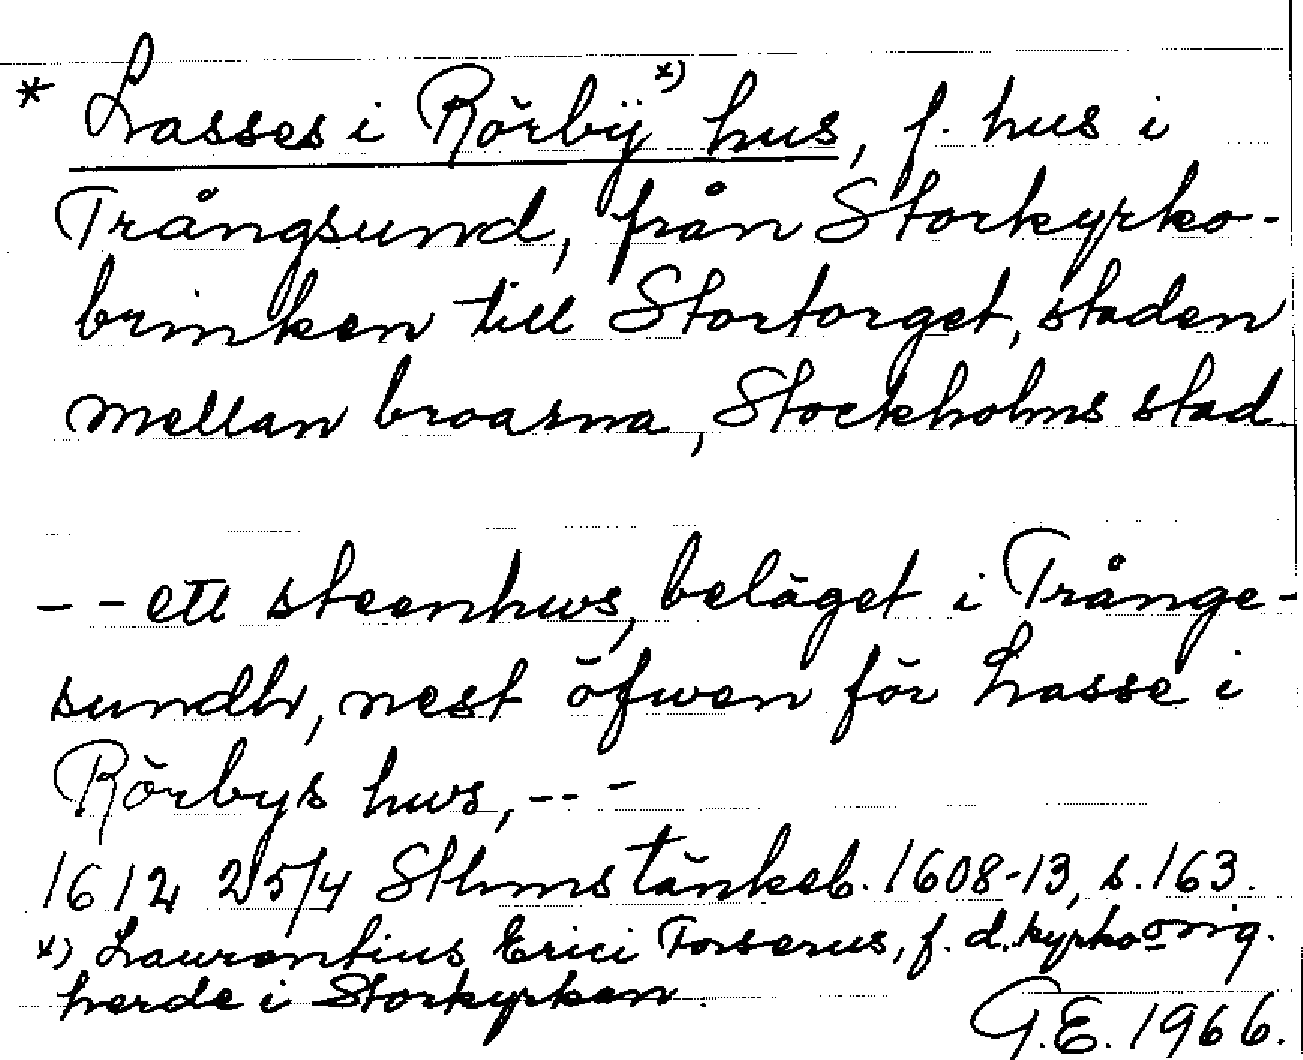 * Lasses i Rörbÿ x) hus, f. hus i
Trångsund, från Storkyrko-
brinken till Stortorget, staden
mellan broarna, Stockholms stad.
- - ett steenhws, beläget i Trånge-
sundh, nest öfwen för Lasse i
Rörbys hws, - - -
1612 25/4 Sthms tänkeb. 1608-13, s. 163.
x) Laurentius Erici Forserus, f. d. kyrko-
herde i Storkyrkan.
G.E. 1966.